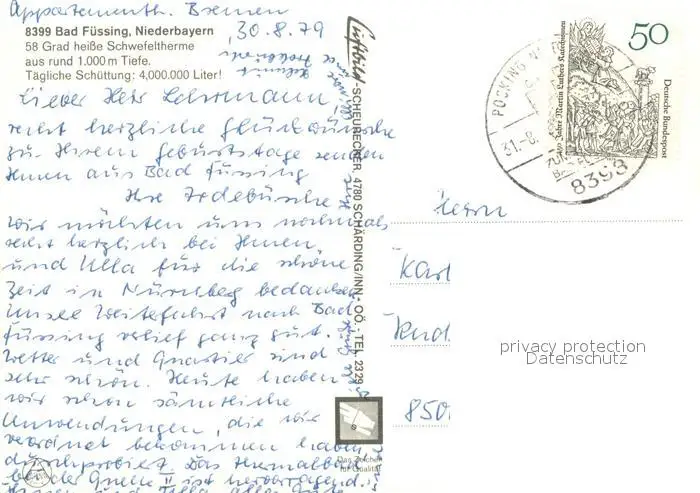 Appartementh. Bremen
30.8.79
8399 Bad Füssing, Niederbayern
58 Grad heiße Schwefeltherme
aus rund 1.000 m Tiefe.
Tägliche Schüttung: 4,000.000 Liter!
Lieber Herr Lehrmann,
recht herzliche Glückwünsche
zu Ihrem Geburtstage senden
Ihnen aus Bad Füssing
Ihre
Wir möchten uns nochmals
recht herzlich bei Ihnen
und Ulla für die schöne
Zeit in Nürnberg bedanken.
Unsere Weiterfahrt nach Bad
Füssing verlief ganz gut.
Wetter und Quartier sind
sehr schön. Heute haben
wir schon sämtliche
Anwendungen, die wir
verordnet bekommen haben,
durchprobiert. Das Thermalbad
bei der Quelle II ist hervorragend.
Ihnen und Ulla alles Gute
Luftbild-SCHEURECKER, 4780 SCHÄRDING/INN · OÖ. · TEL. 2329
Das Zeichen
für Qualität
50
Deutsche Bundespost
450 Jahre Martin Luthers Katechismen
POCKING
31.-8.
8398
Herrn
Karl
850
privacy protection
Datenschutz